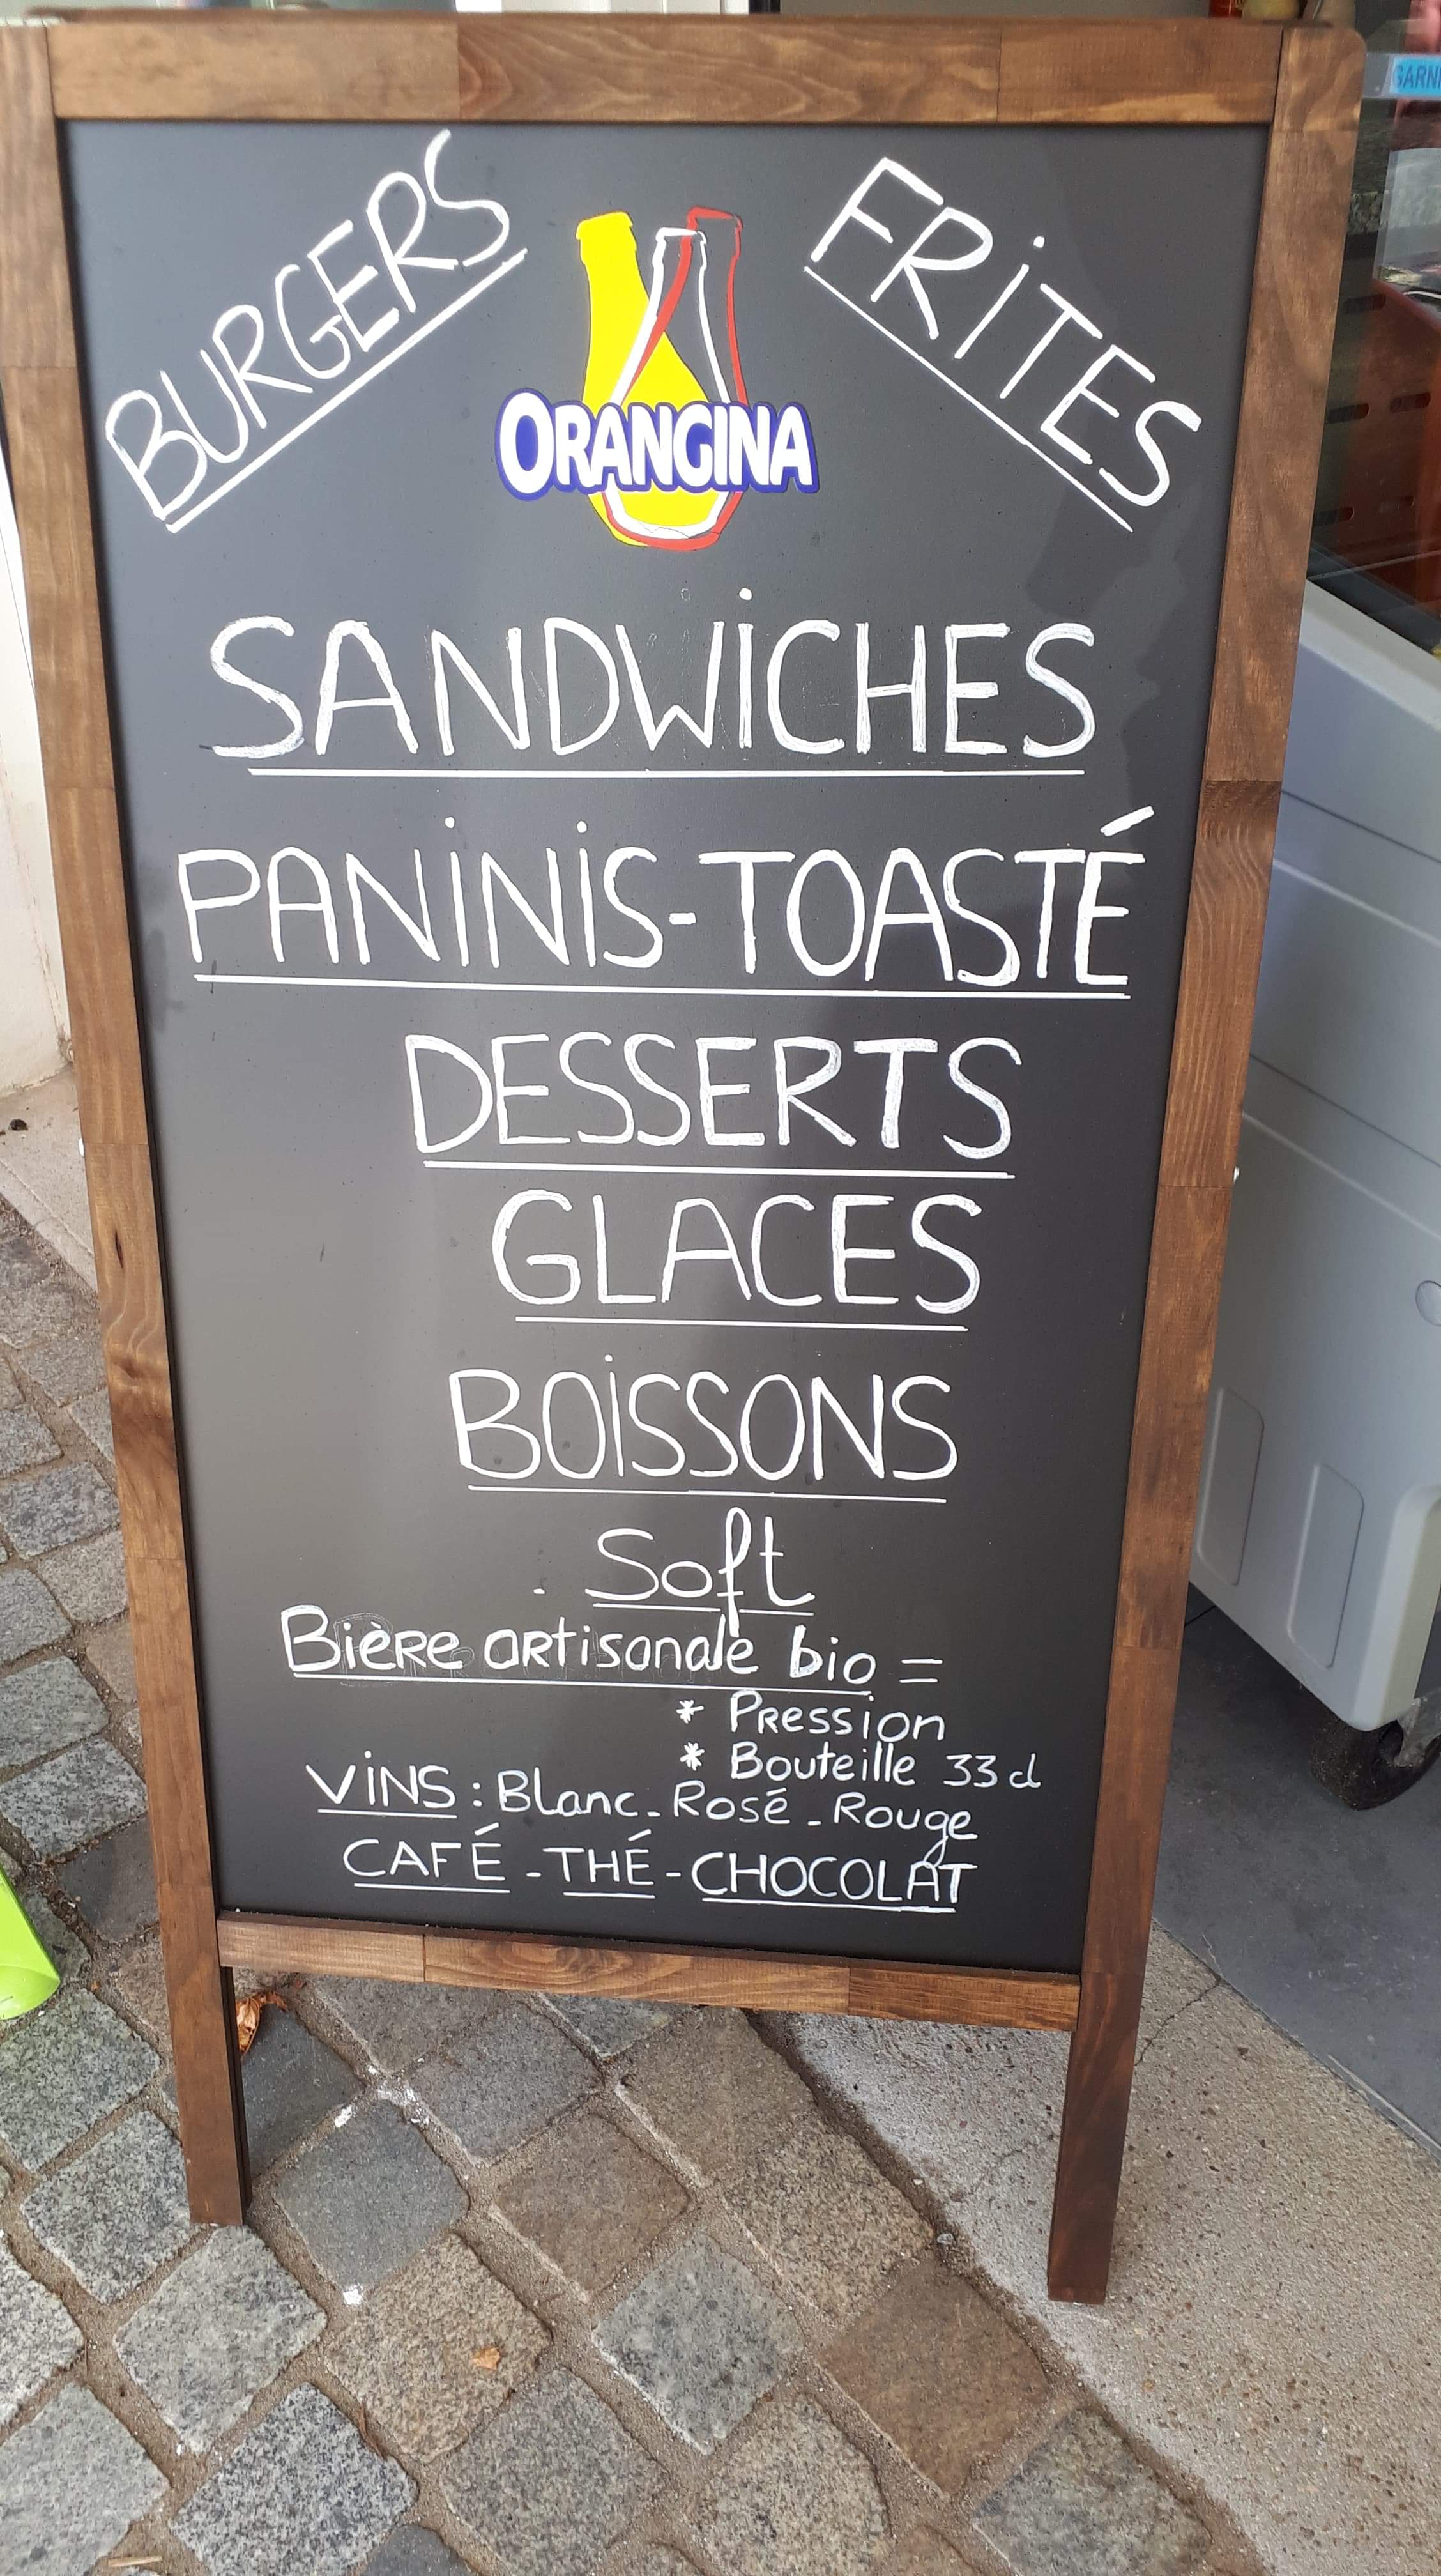 BURGERS
FRITES
ORANGINA
SANDWICHES
PANINIS-TOASTÉ
DESSERTS
GLACES
BOISSONS
. Soft
Bière artisanale bio =
* Pression
* Bouteille 33 d
VINS : Blanc - Rosé - Rouge
CAFÉ - THÉ - CHOCOLAT